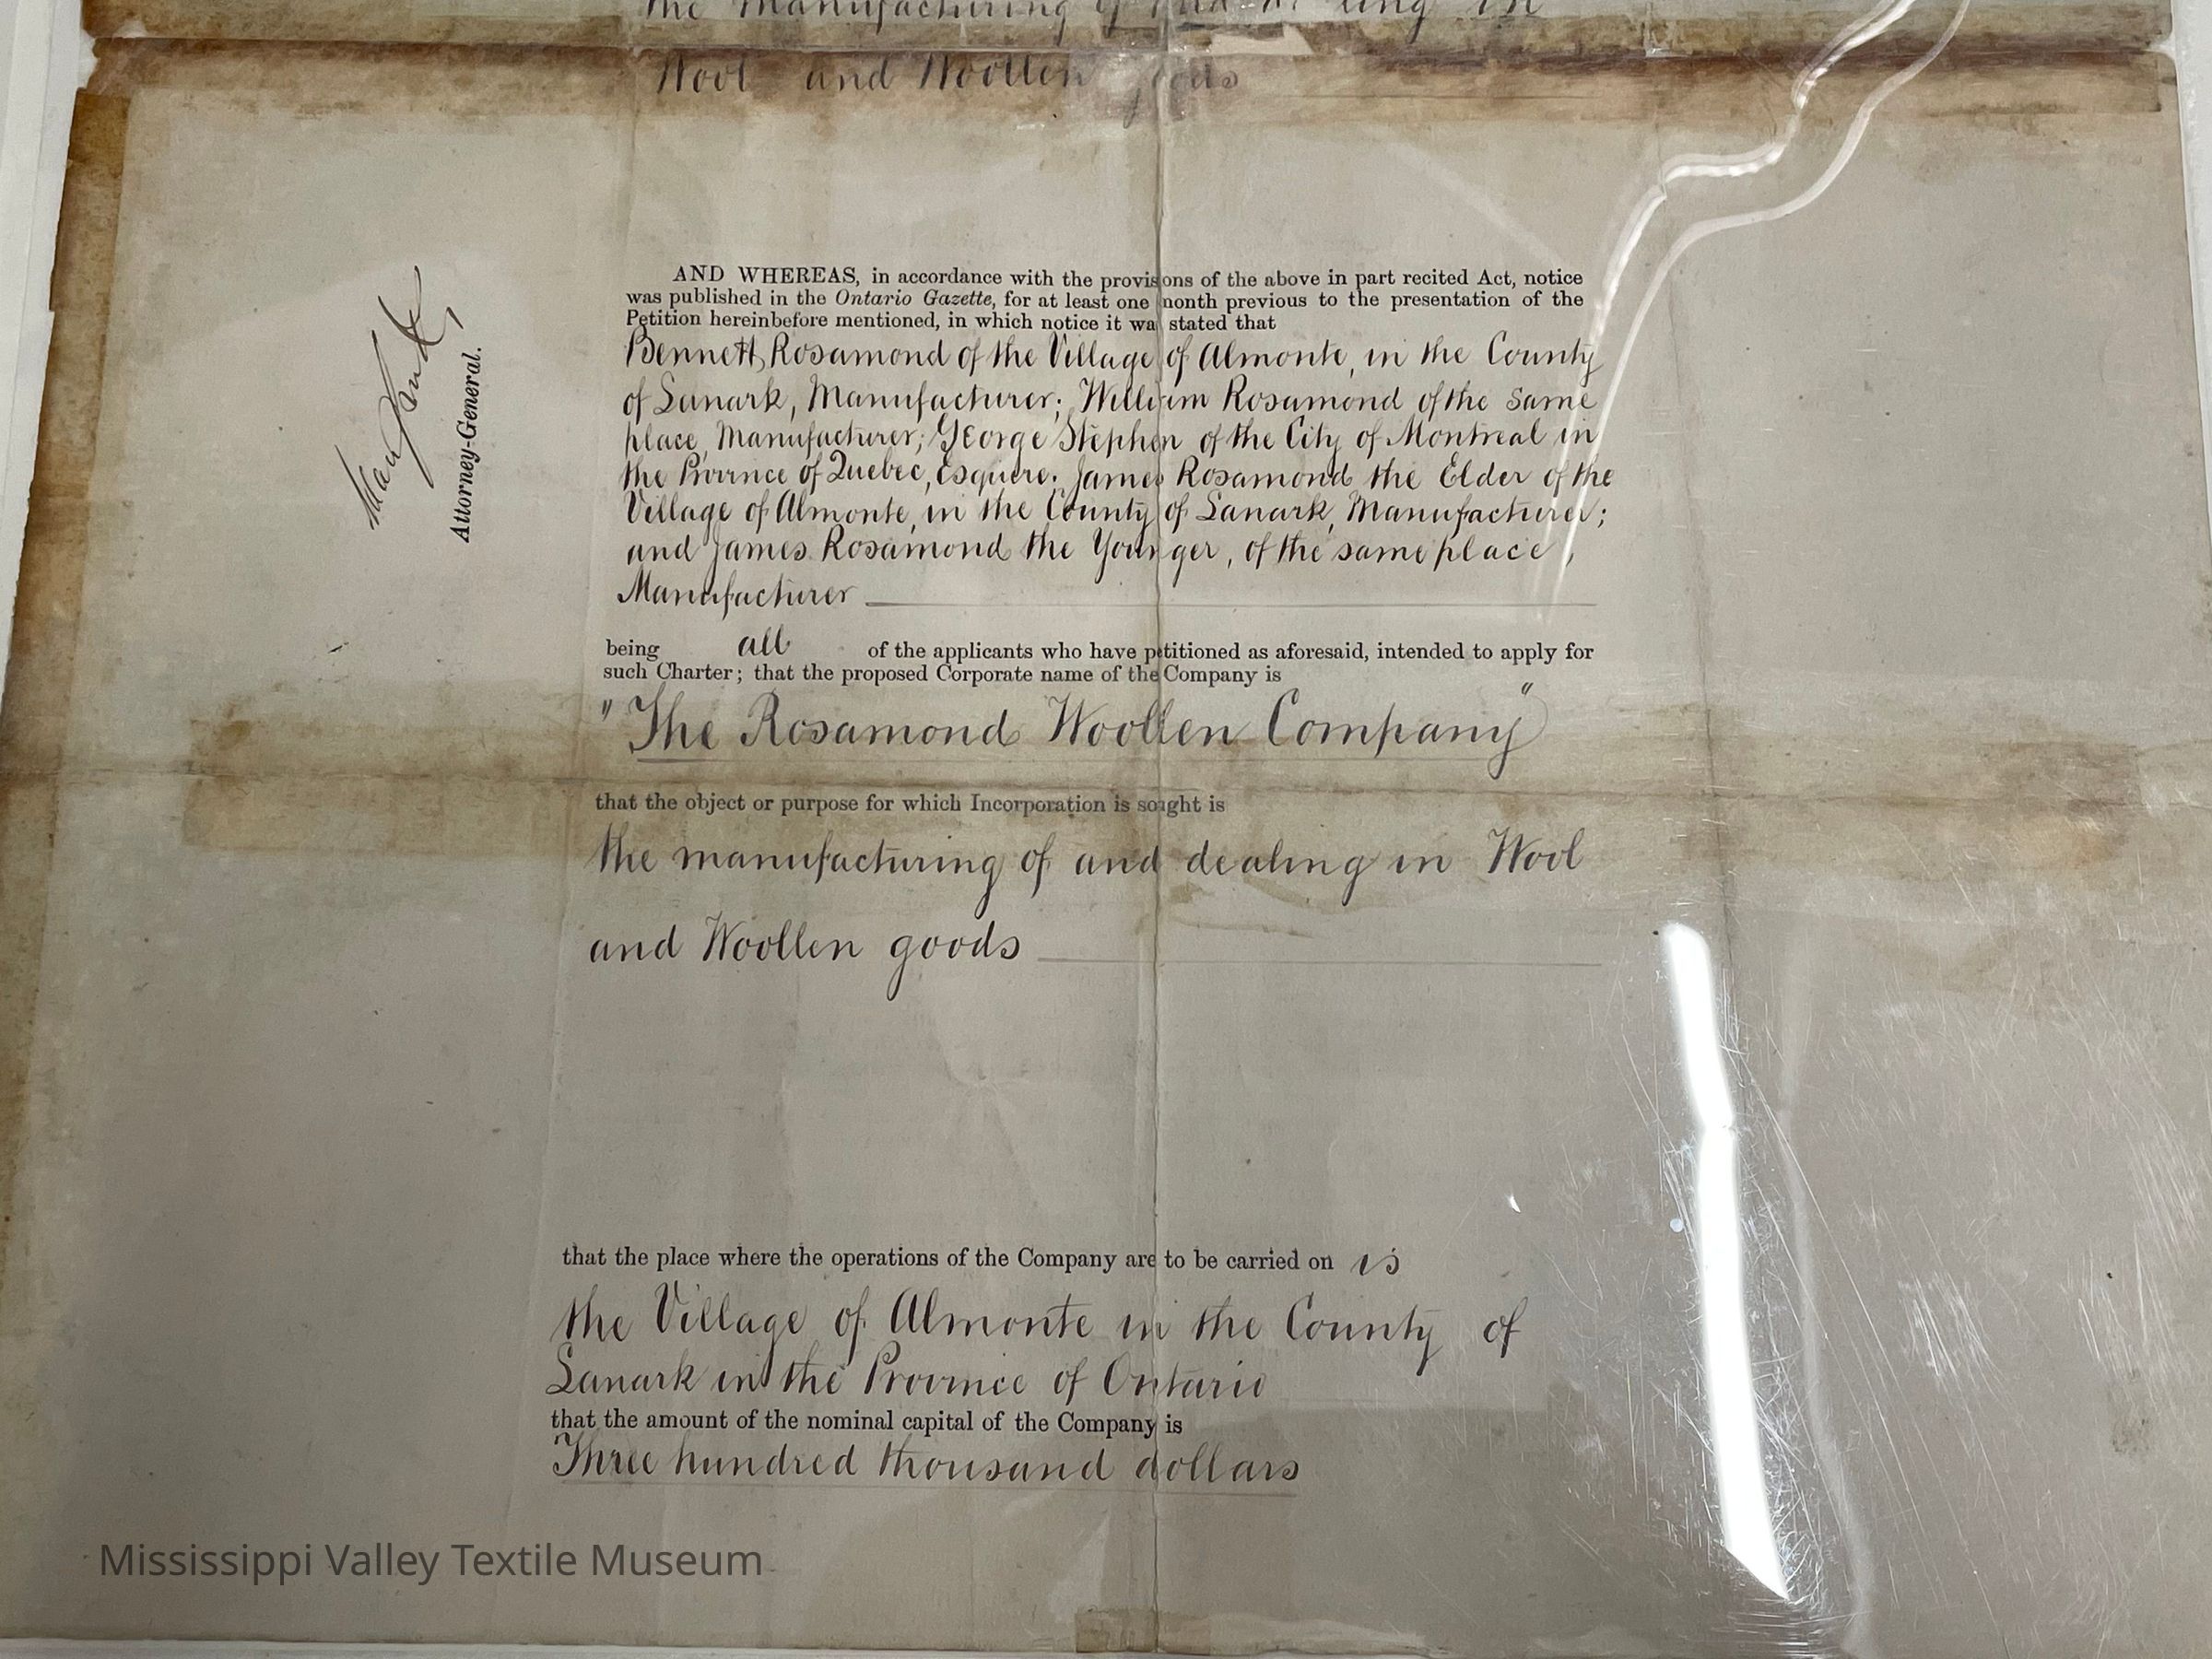 the Manufacturing of and dealing in
Wool and Woollen goods
AND WHEREAS, in accordance with the provisions of the above in part recited Act, notice
was published in the Ontario Gazette, for at least one month previous to the presentation of the
Petition hereinbefore mentioned, in which notice it was stated that
Bennett Rosamond of the Village of Almonte, in the County
of Lanark, Manufacturer; William Rosamond of the same
place, Manufacturer; George Stephen of the City of Montreal in
the Province of Quebec, Esquire; James Rosamond the Elder of the
Village of Almonte, in the County of Lanark, Manufacturer;
and James Rosamond the Younger, of the same place,
Manufacturer
being all of the applicants who have petitioned as aforesaid, intended to apply for
such Charter; that the proposed Corporate name of the Company is
"The Rosamond Woollen Company"
that the object or purpose for which Incorporation is sought is
the manufacturing of and dealing in Wool
and Woollen goods
that the place where the operations of the Company are to be carried on is
the Village of Almonte in the County of
Lanark in the Province of Ontario
that the amount of the nominal capital of the Company is
Three hundred thousand dollars
Attorney-General.
Mississippi Valley Textile Museum